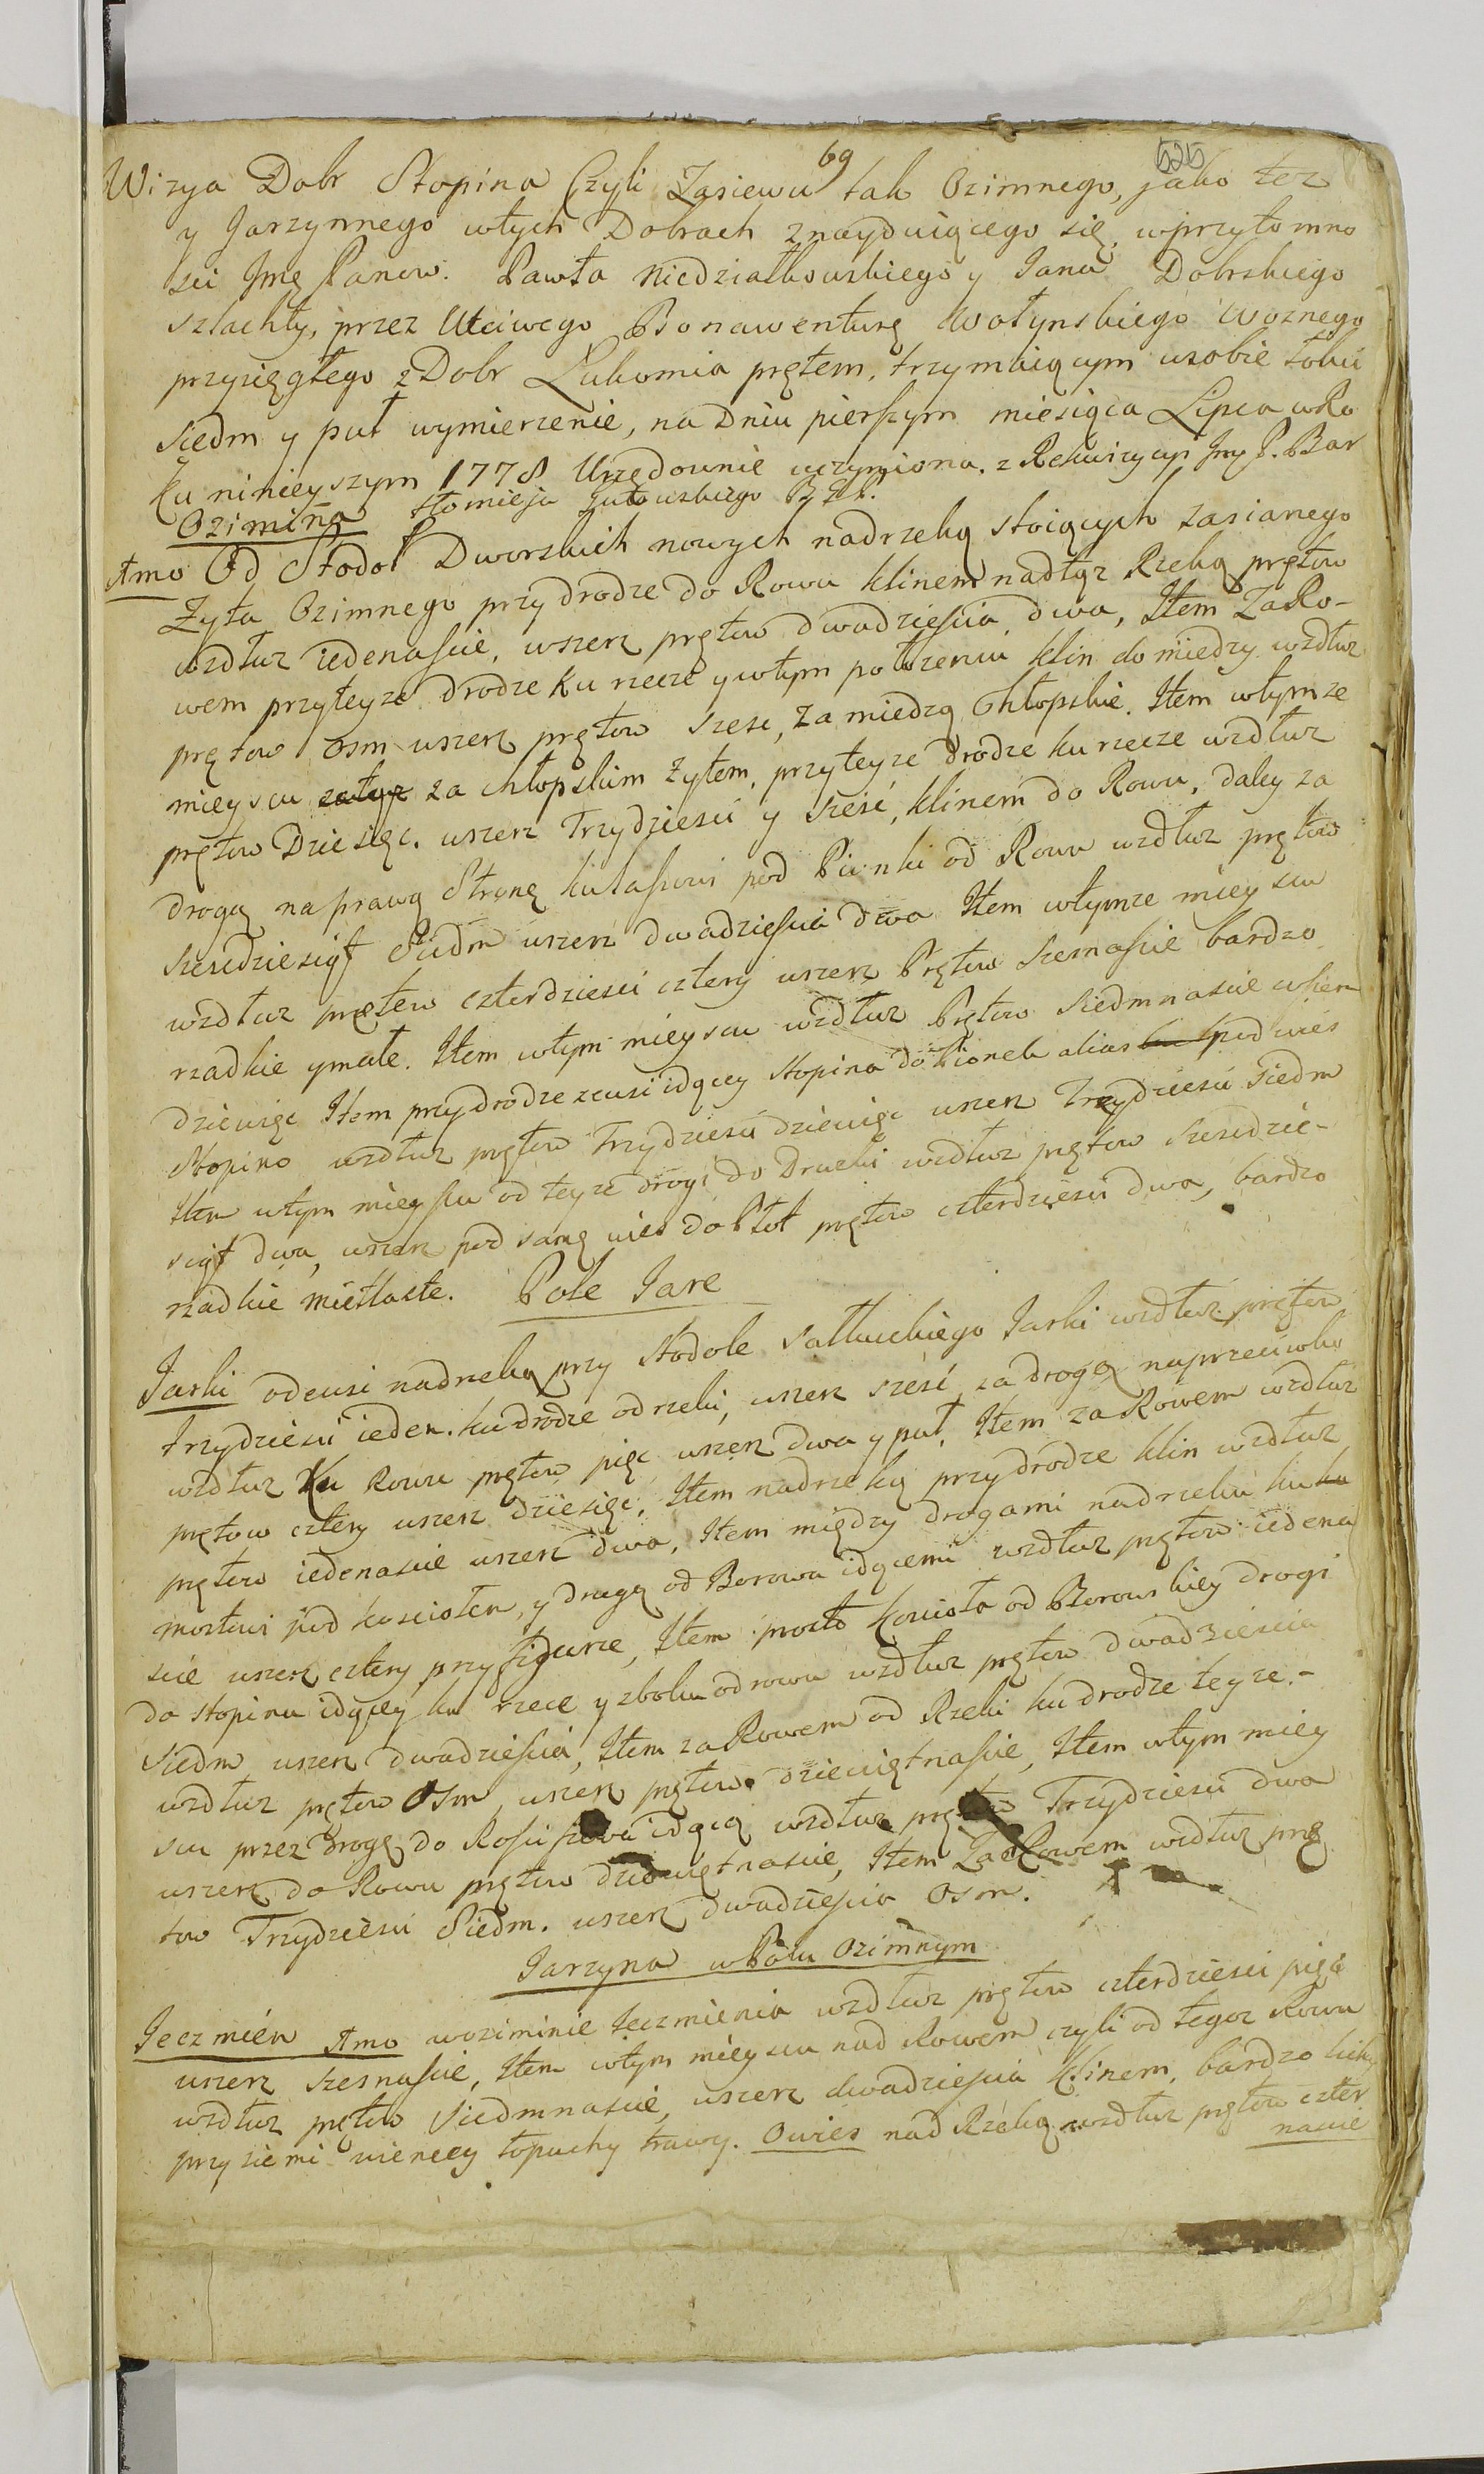 69
525
Wizya Dobr Stopina Czyli Zasiewu tak Ozimnego, jako tez
y Jarzynnego wtych Dobrach znayduiącego się, wprzytomno
sci Jmę Panow. Pawła Niedziałkowskiego y Jana Dobrskiego
szlachty, przez Uczciwego Bonawenturę Wołynskiego Woznego
przysięgłego z Dobr Lukomia prętem, trzymaiącym wsobie łokci
siedm y puł wymierzenie, na Dniu pierszym miesiąca Lipca wRo
ku ninieyszym 1778 Urzędownie uczyniona. z Rekwizycyi Jmę P. Bar
tłomieja
Ozimina
Amo Od Stodoł Dworskich nowych nadrzeką stoiących zasianego
Zyta Ozimnego przydrodze do Rowu klinem nadtąz Rzeką prętow
wzdłuz iedenascie, wszerz prętow dwadziescia dwa, Item ZaRo-
wem przyteyze drodze ku rzece ywtym połozeniu klin do miedzy wzdłuz
prętow osm wszerz prętow szesc, za miedzą Chłopskie. Item wtymze
mieyscu za chłopskim zytem, przyteyze drodze ku rzecze wzdłuz
prętow Dziesięc. wszerz Trzydziesci y szesć, klinem do Rowu, daley za
drogą naprawą Stronę pod Pienki od Rowu wzdłuz prętow
szescdziesiąt Siedm wszerz dwadziescia dwa Item wtymze mieyscu
wzdłuz prętow czterdziesci cztery wszerz Prętow Szesnascie bardzo
rzadkie ymałe. Item wtym mieyscu wzdłuz Prętow Siedmnascie wszerz
dziewięc Item przydrodze zewsi idącey Stopina do Pionek alias pod wies
Stopino wzdłuz prętow Trzydziesci dziewięc wszerz Trzydziesci siedm
Item wtym mieyscu od teyze drogi do Drucki wzdłuz prętow szescdzie-
siąt dwa, wszerz pod samą wies do Płot prętow czterdziesci dwa, bardzo
rzadkie mietlaste. Pole Jare
Jarki odewsi nadrzeką przy stodole Jarki wzdłuz prętow
trzydziesci ieden. kudrodze odrzeki, wszerz szesć, za drogą naprzeciwko
wzdłuz Ku Rowu prętow pięc wszerz dwa y puł, Item za Rowem wzdłuz
prętow cztery wszerz dziesięc, Item nadrzeką przydrodze klin wzdłuz
prętow iedenascie wszerz dwa, Item między drogami nadrzeką ku
mostowi pod kosciołem, y drugą od Borowa idącemi wzdłuz prętow iedena
scie wszerz cztery przyfigurze, Item prosto Koscioła od Borowskiey drogi
do Stopina idącey ku rzece yzboku od rowu wzdłuz prętow dwadziescia
siedm wszerz dwadziescia, Item za Rowem od Rzeki ku drodze teyze.-
wzdłuz prętow Osm, wszerz prętow dziewiętnascie, Item wtym miey
scu przez drogę do Rosciszewa idącą wzdłuz prętow Trzydziesci dwa
wszerz do Rowu prętow dziewiętnascie, Item Za Rowem wzdłuz prę
tow Trzydziesci Siedm. wszerz dwadziescia Osm.
Jarzyna wPolu Ozimnym
Jeczmień Amo woziminie Jeczmienia wzdłuz prętow czterdziesci pięć
wszerz szesnascie, Item wtym mieyscu nad Rowem czyli od tegoz Rowu
wzdłuz prętow Siedmnascie, wszerz dwadziescia klinem, bardzo lichy
przyziemi wiencey łopuchy trawy. Owies nad Rzeką wzdłuz prętow czter
nascie